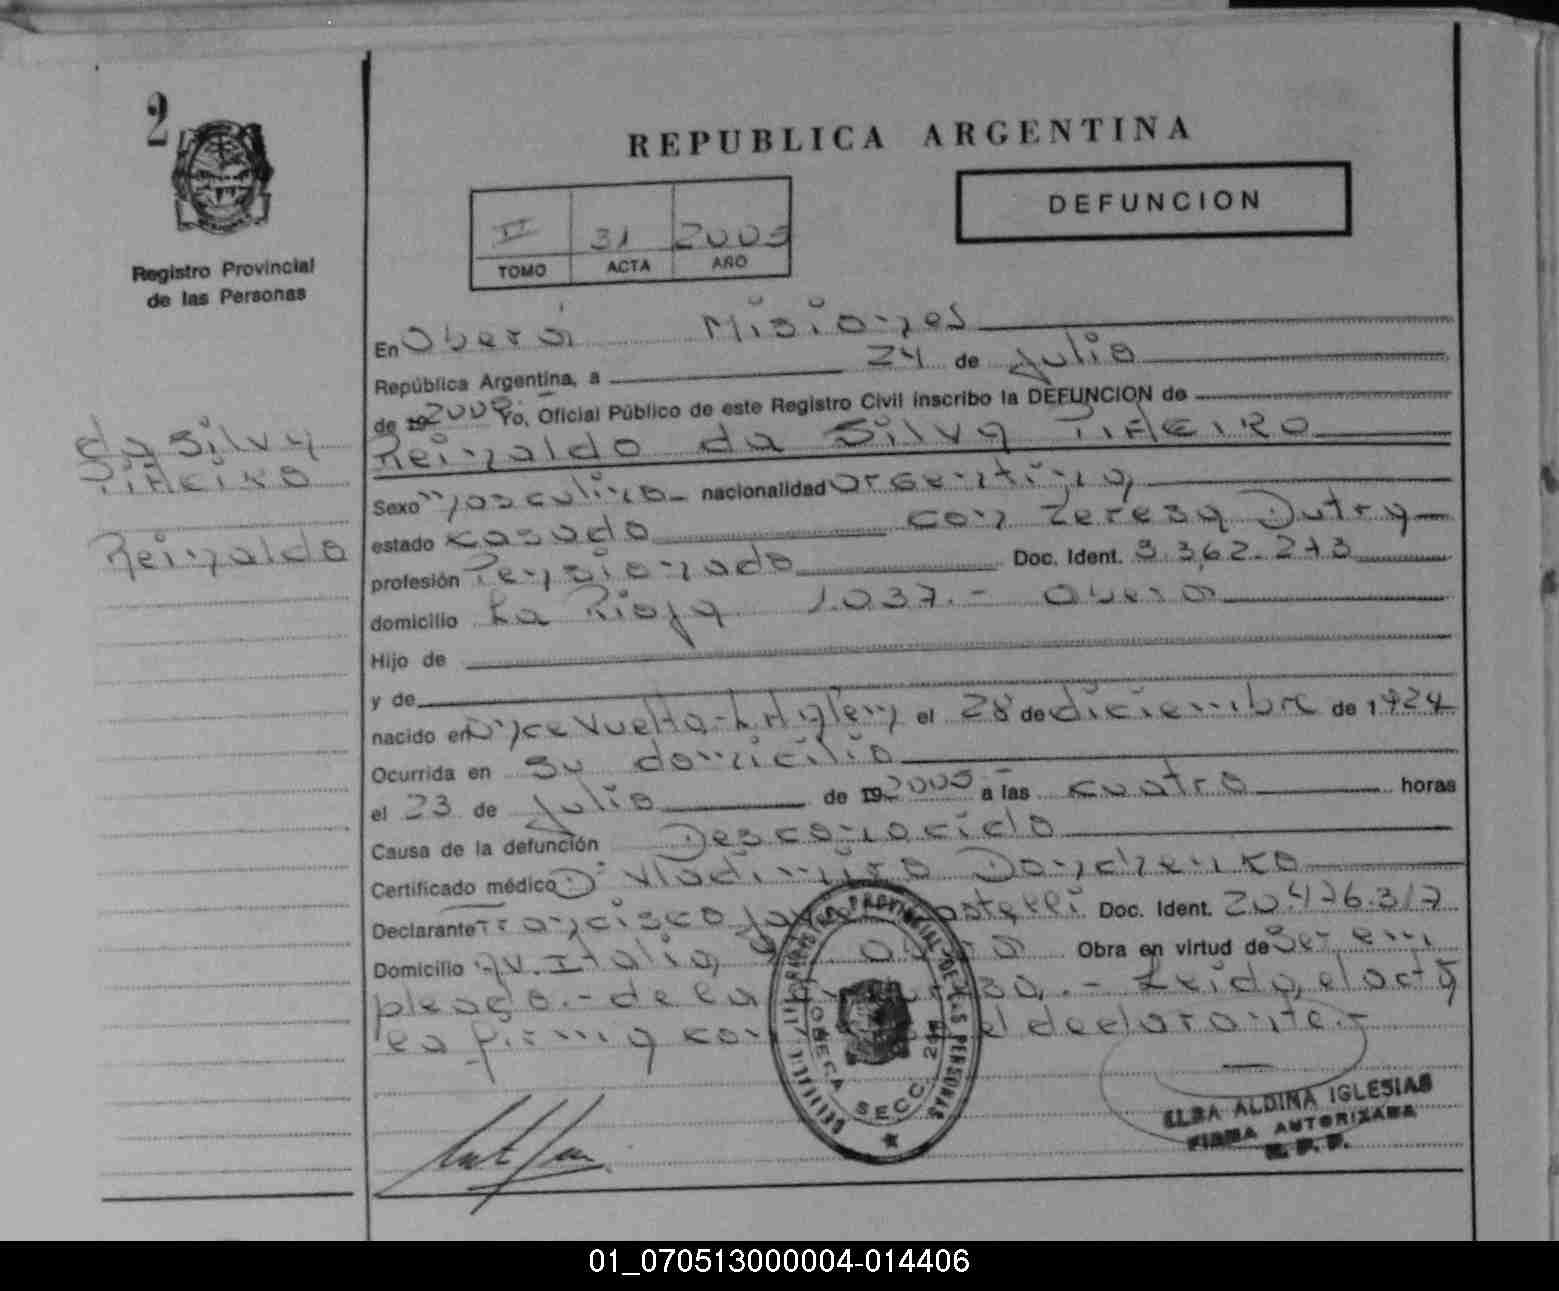 2
REPUBLICA ARGENTINA
DEFUNCION
II 31 2005
TOMO ACTA AÑO
Registro Provincial
de las Personas
da Silva
Piñeiro
Reinaldo
En Oberá Misiones
República Argentina, a 24 de Julio
de 19 2005 Yo, Oficial Público de este Registro Civil inscribo la DEFUNCION de
Reinaldo da Silva PIÑEIRO
Sexo masculino nacionalidad argentina,
estado casado con Teresa Dutra
profesión Pensionado Doc. Ident. 3.362.273
domicilio La Rioja 1.037.- Oberá
Hijo de
y de
nacido en Once Vuelta-L.N.Alem el 28 de diciembre de 1924
Ocurrida en su domicilio
el 23 de Julio de 19 2005 a las cuatro horas
Causa de la defunción Desconocido
Certificado médico Dr Vladimiro Donchenko
Declarante Francisco Doc. Ident. 20.476.317
Domicilio AV. Italia, Obra en virtud de Ser em
pleado.- de la .- Leida, el acta
la firma el declarante.-
REGISTRO PROVINCIAL DE LAS PERSONAS
SECC.
ELBA ALDINA IGLESIAS
FIRMA AUTORIZADA
R. P. P.
01_070513000004-014406